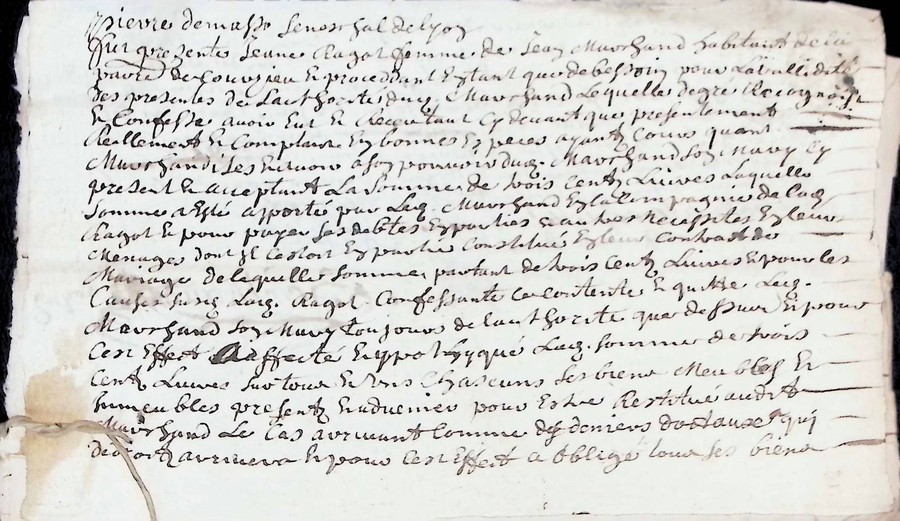 pierre demasso seneschal de lyon
fut presente Jeane Ragot femme de Jean Marchand habitant de la
parre de Courzieu En procedant Entant que de bessoin pour La vallidité
des presentes de Lauthorité dud. Marchand Lequelle de gre Recognoist
Et Confesse avoir Eut Et Receu tant Cy devant que presentement
Reallement Et Comptant En bonnes Especes ayant Cours quant
Marchandises Et autre a son pouvoir dud. Marchand son Mary Cy
present Et aceptant La somme de trois Centz Livres Laquelle
somme a Esté aporté par Led. Marchand En la Compagnie de lad.
Ragot Et pour payer ses debtes En parties Et autres Necessites En leur
Menages dont Il Cestoit En partie Constitué En leur Contract de
Mariage de lequelle somme partant de trois Centz Livres Et pour les
Causes susd. Lad. Ragot Confessante Ce Contente Et quitte Led.
Marchand son Mary toujours de lauthorite que dessus Et pour
Cest Effect a affecté Et ypothyqué Lad. somme de trois
Centz Livres sur tous Et Uns Chascuns ses biens Meubles Et
Immeubles presentz Et advenier pour Estre Restitué audit
Marchand Le Cas arrivant Comme des deniers dotaux qui
arrivera Et pour Cest Effect a obligé tous ses biens